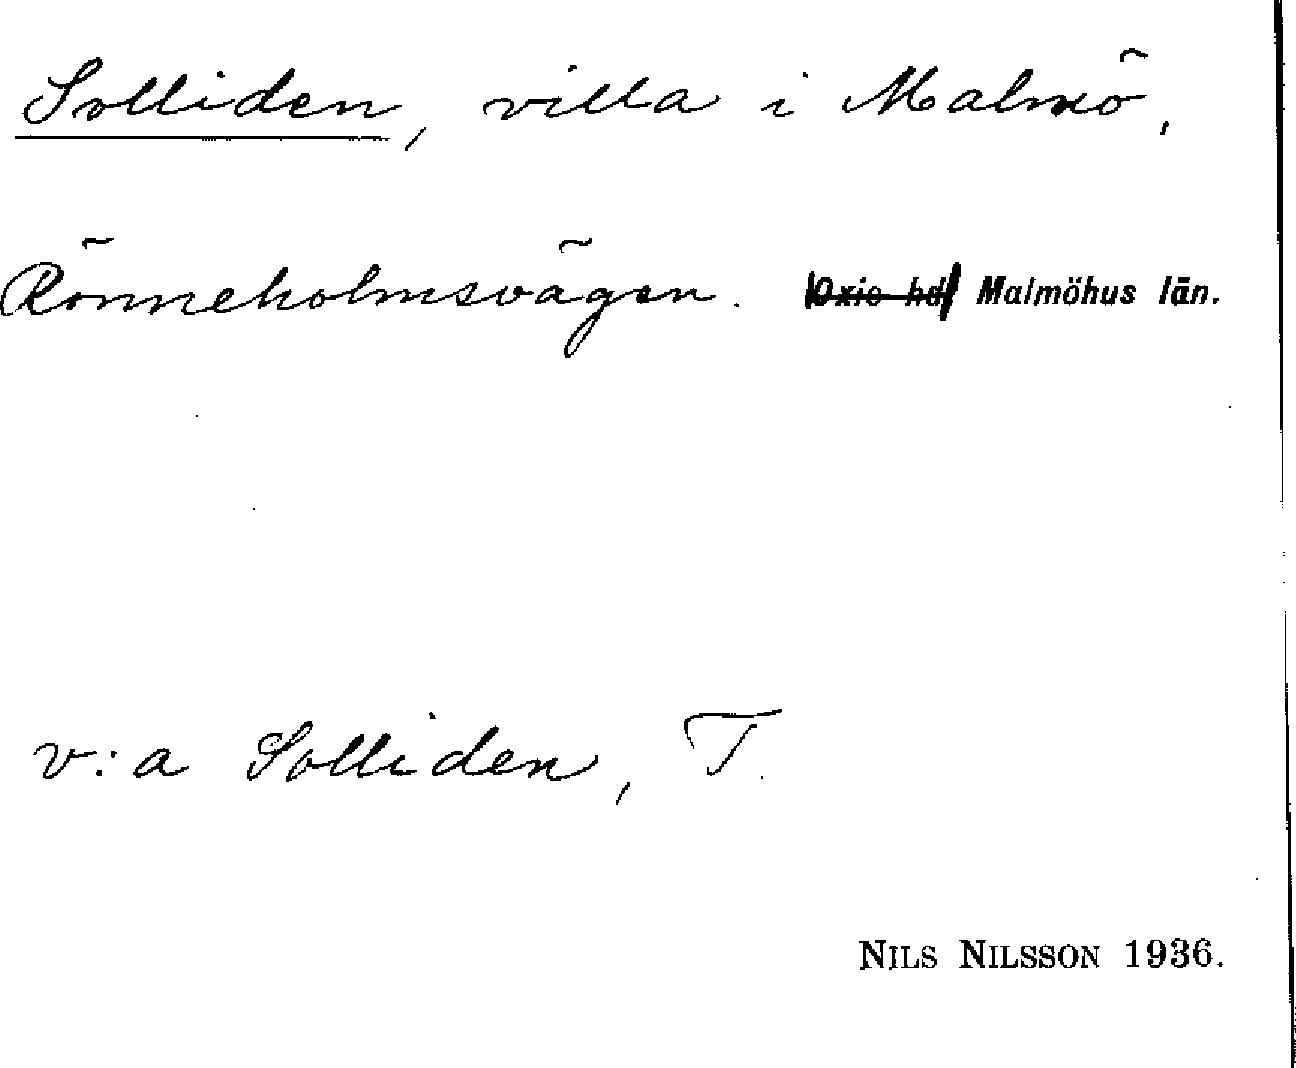 Solliden, villa i Malmö,
Rönneholmsvägen. Oxie hd Malmöhus län.
v:a Solliden, T.
NILS NILSSON 1936.